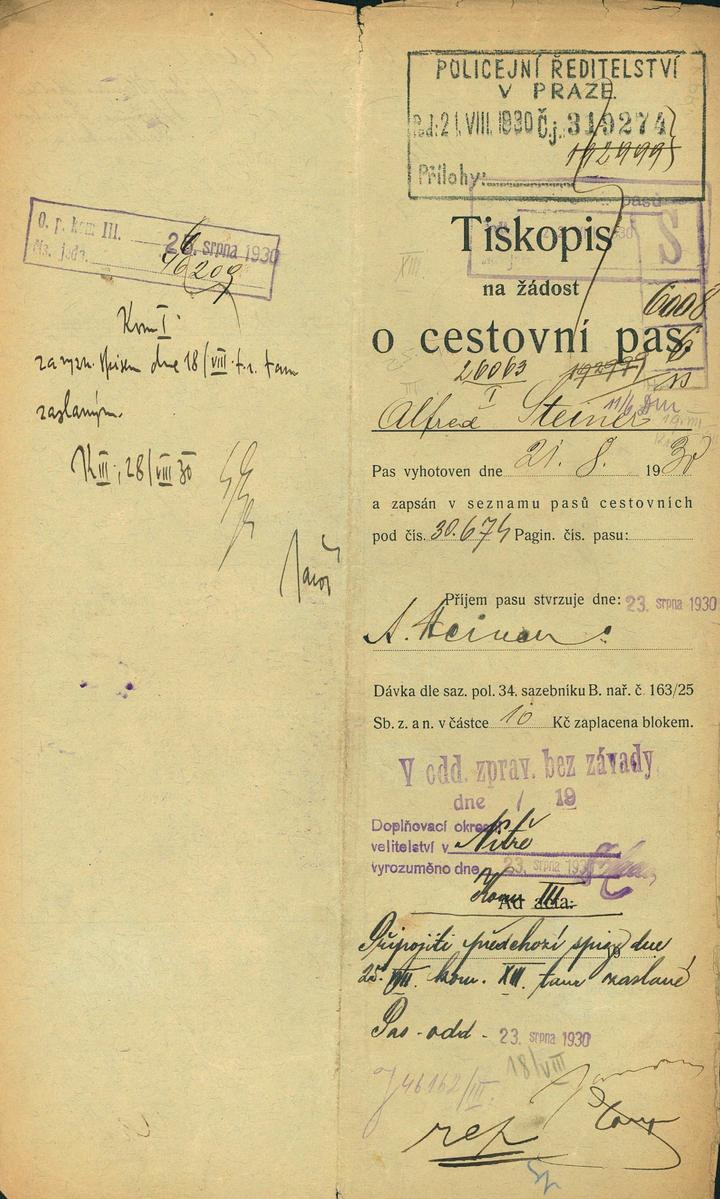 O. p. kom III.
26. srpna 1930
Čís. jedn. 46209
Kom I
spisem dne 18/VIII t. r. tam
zaslaným.
KIII, 28/VIII 30
POLICEJNÍ ŘEDITELSTVÍ
V PRAZE
Pod: 21. VIII. 1930 Č.j. 319274
192999
Přílohy:
pasů
S
XIII.
Tiskopis
na žádost
6008
6
o cestovní pas.
26063
I
11/6
Alfred Steiner
Pas vyhotoven dne 21. 8. 1930
a zapsán v seznamu pasů cestovních
pod čís. 30.674 Pagin. čís. pasu:
Příjem pasu stvrzuje dne: 23. srpna 1930
A. Steiner
Dávka dle saz. pol. 34. sazebníku B. nař. č. 163/25
Sb. z. a n. v částce 10 Kč zaplacena blokem.
V odd. zprav. bez závady
dne / 19
Doplňovací okresní
velitelství v Nitře
vyrozuměno dne 23. srpna 1930
Kom III
Ad acta:
19
Připojiti předchozí spis dne
25. VIII. kom. XIII. tam zaslané
Pas. odd. 23. srpna 1930
18/VIII
J 46162/III.
rep